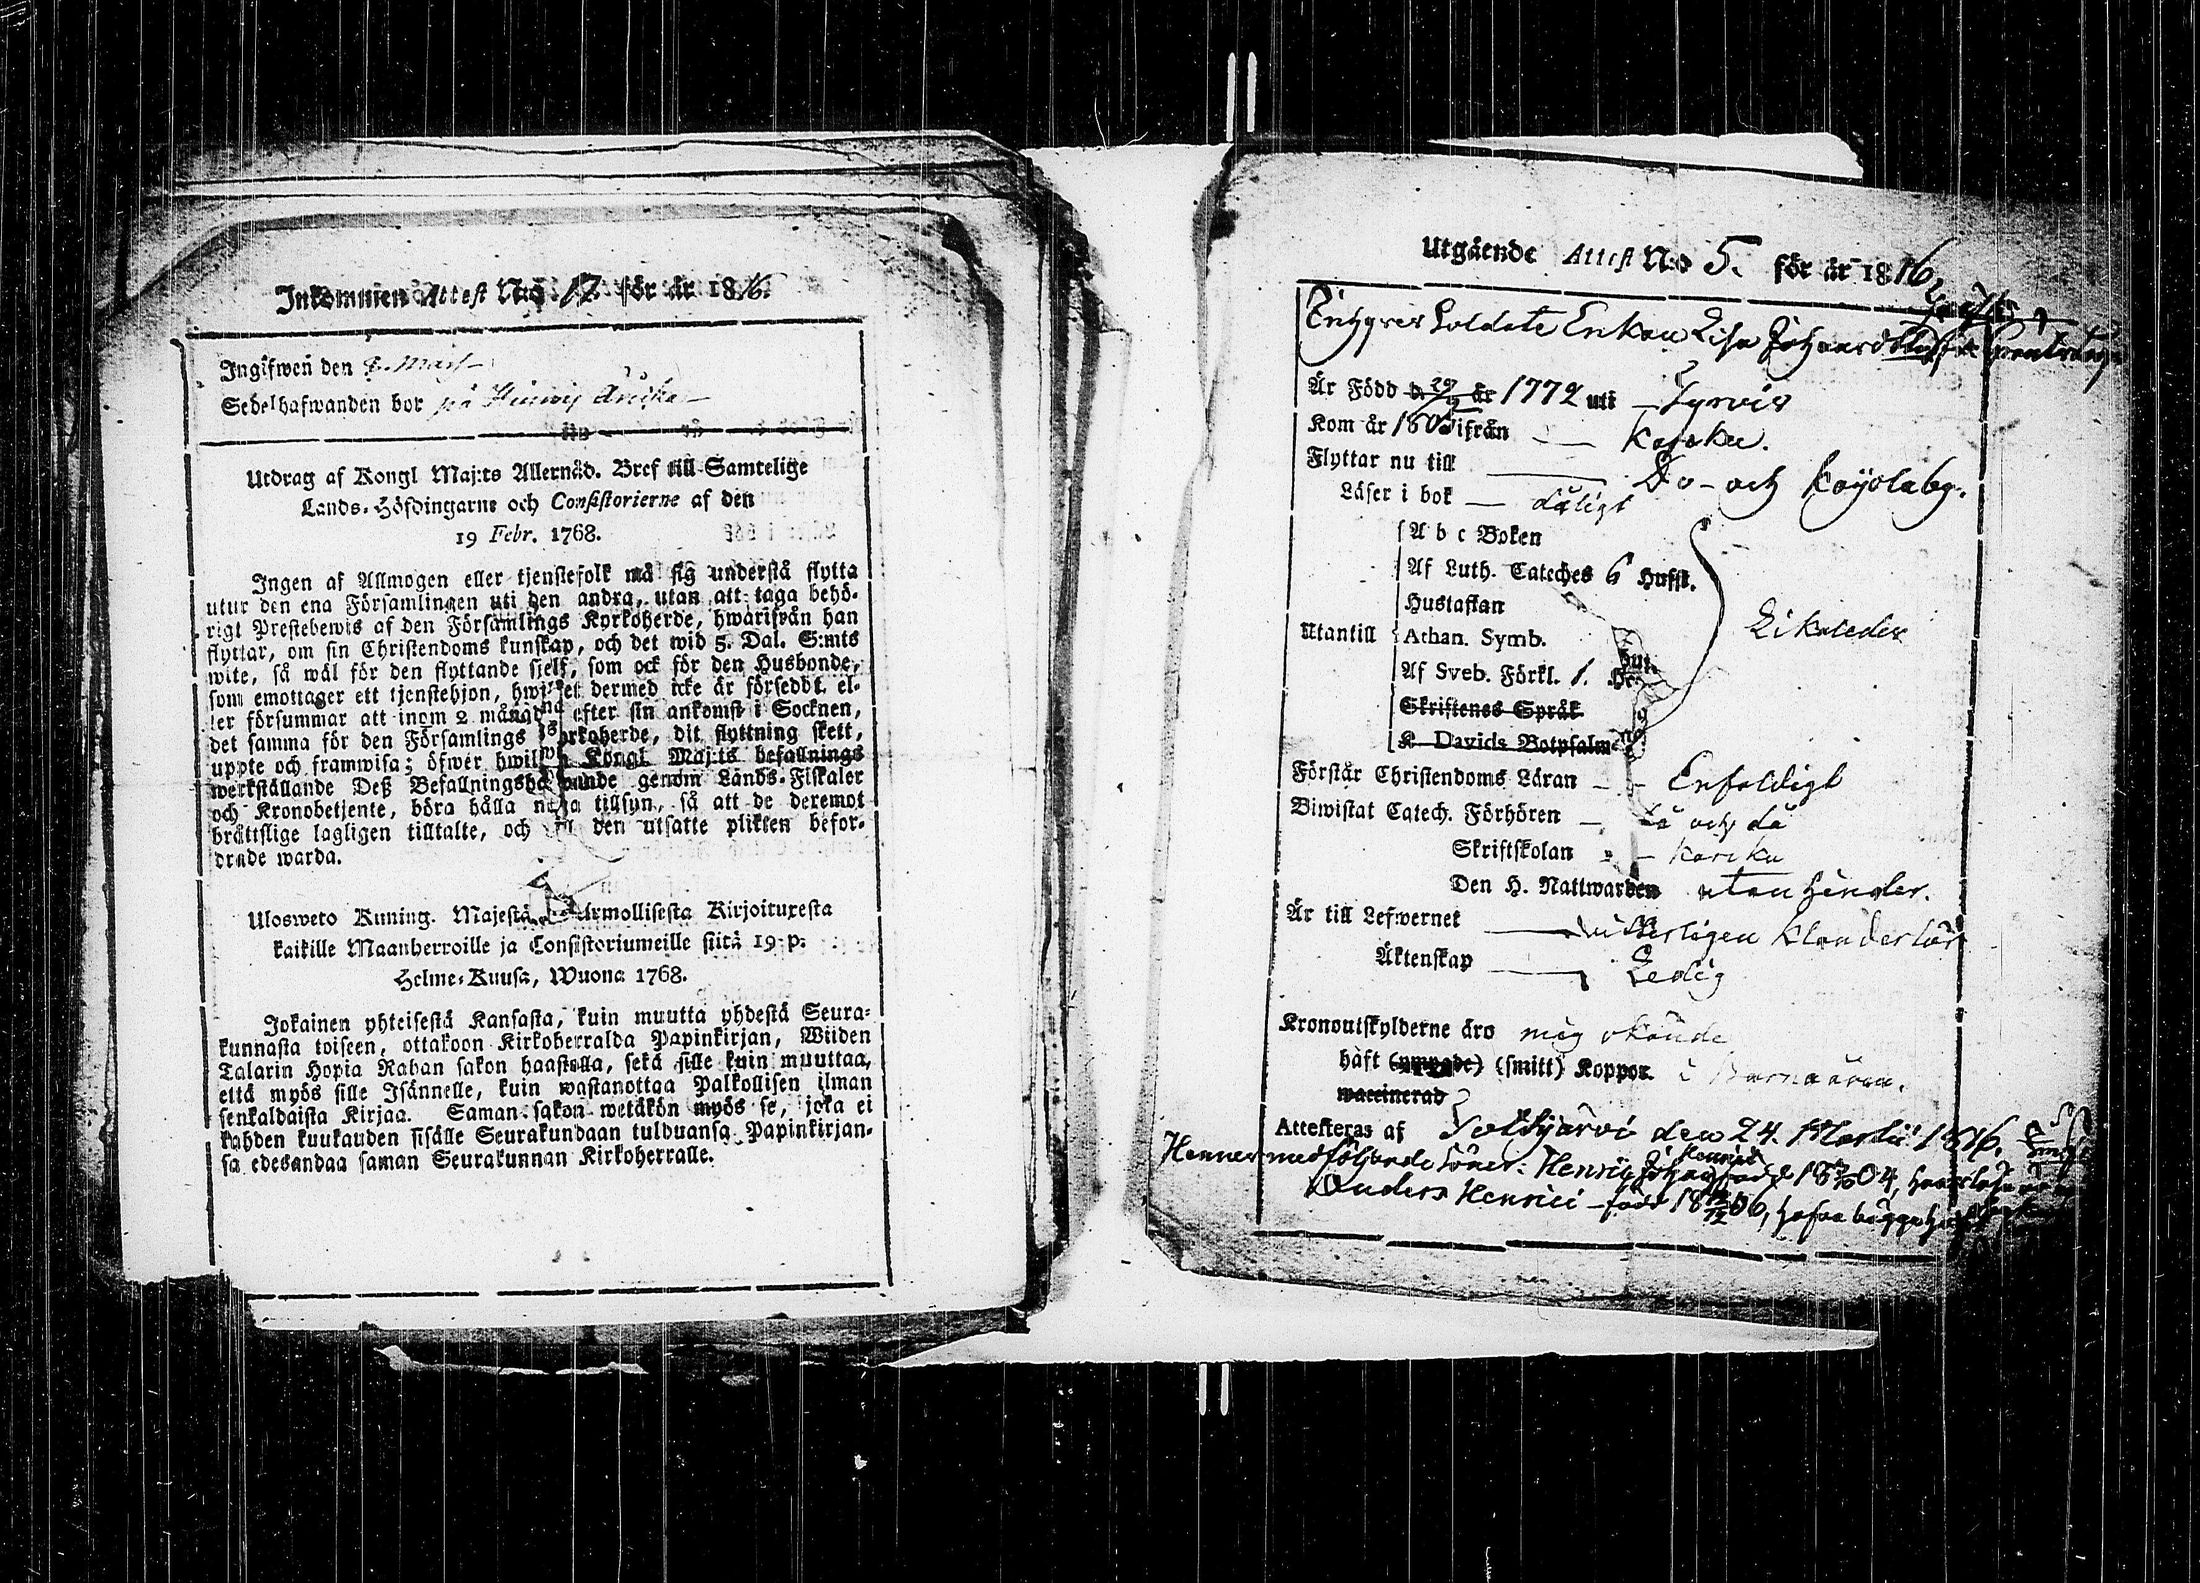 Inkommen Attest N:o 17. för år 1816.
Ingifwen den 8. Mart
Sedelhafwanden bor på
Utdrag af Kongl Maj:ts Allernåd. Bref till Samtelige
Lands-Höfdingarne och Consistorierne af den
19 Febr. 1768.
Ingen af Allmogen eller tjenstefolk må sig understå flytta
utur den ena Församlingen uti den andra, utan att taga behö-
rigt Prestebewis af den Församlings Kyrkoherde, hwarifrån han
flyttar, om sin Christendoms kunskap, och det wid 5. Dal. S:mts
wite, så wäl för den flyttande sjelf, som ock för den Husbonde,
som emottager ett tjenstehjon, hwilket dermed icke är försedd: el-
ler försummar att inom 2 månader efter sin ankomst i Socknen,
det samma för den Församlings Kyrkoherde, dit flyttning skett,
uppte och framwisa; öfwer hwilken Kongl Maj:ts befallnings
werkställande Deß Befallningshafwande genom Lands-Fiskaler
och Kronobetjente, böra hålla noga tillsyn, så att de deremot
bråttslige lagligen tilltalte, och till den utsatte plikten befor-
drade warda.
Ulosweto Kuning. Majestä Armollisesta Kirjoituxesta
kaikille Maanherroille ja Consistoriumeille siitä 19 p.
Helme-Kuusa, Wuona 1768.
Jokainen yhteisestä Kansasta, kuin muutta yhdestä Seura-
kunnasta toiseen, ottakoon Kirkoherralda Papinkirjan, Wiiden
Talarin Hopia Rahan sakon haastolla, sekä sille kuin muuttaa,
että myös sille Isännelle, kuin wastanottaa Palkollisen ilman
senkaldaista Kirjaa. Saman sakon wetäkön myös se, joka ei
kahden kuukauden sisälle Seurakundaan tulduansa Papinkirjan-
sa edesandaa saman Seurakunnan Kirkoherralle.
Utgående Attest N:o 5. för år 1816
Soldate Enkan Lisa
Är Född d. 29/9 år 1772 uti Tyrvis
Kom år 1805 ifrån Karcku.
Flyttar nu till Do och
Läser i bok dåligt
A b c Boken
Af Luth. Cateches 6 Hufst.
Hustaflan
Utantill Athan. Symb. Likaledes
Af Sveb. Förkl. 1.
Skriftenes Språk
K. Davids Botpsalm
Förstår Christendoms Läran Enfaldigt
Biwistat Catech. Förhören Då och då
Skriftskolan Karcku
Den H. Nattwarden utan hinder.
Är till Lefwernet Klanderlös
Äktenskap Ledig
Kronoutskylderne äro mig okände
häft (ympade) (smitt) Koppor i Barnaåren.
waccinerad
Attesteras af den 24. Martii 1816.
Hennes medföljande Söner: född 1804,
Anders Henrici född 1806, hafva bägge